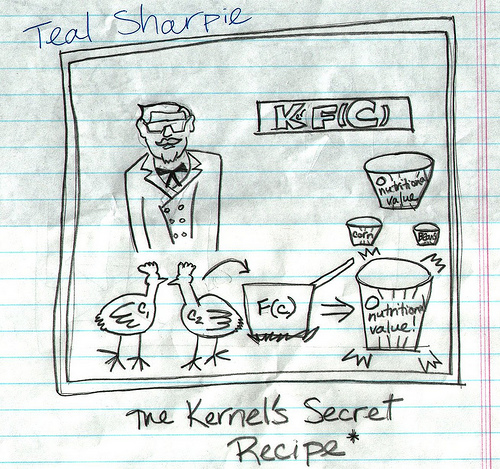 Teal Sharpie
K·F(C)
O
nutritional
value
corn
C₁
C₂
F(c)
O
nutritional
value!
The Kernel's Secret
Recipe*